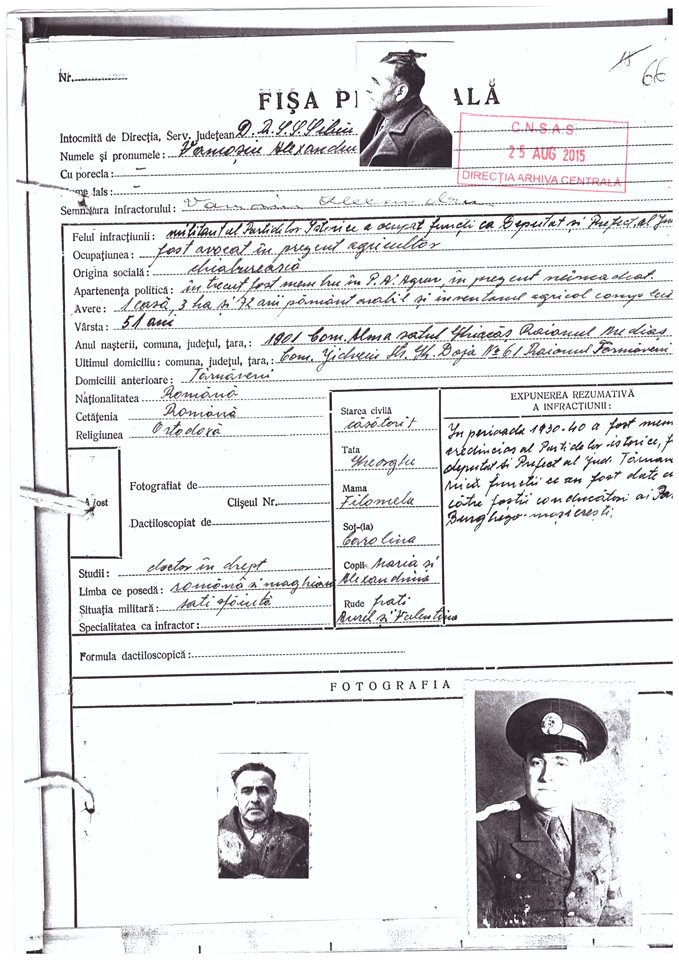 Nr.
66
FIŞA P ALĂ
C.N.S.A.S.
25 AUG 2015
DIRECŢIA ARHIVA CENTRALĂ
Intocmită de Direcţia, Serv. Judeţean
Numele şi pronumele: Alexandru
Cu porecla: -
me fals: -
Semnătura infractorului:
Felul infracţiunii: militantul Partidelor Istorice a ocupat funcţii ca Deputat şi Prefect al
Ocupaţiunea: fost avocat în prezent agricultor
Origina socială: chiaburească
Apartenenţa politică: în trecut fost membru în P. în prezent neîncadrat.
Avere: 1 casă, 3 ha şi 72 ari pământ arabil şi inventarul agricol complect
Vârsta: 51 ani
Anul naşterii, comuna, judeţul, ţara,: 1901 Com. Alma satul Raionul Mediaş
Ultimul domiciliu: comuna, judeţul, ţara,: Com. Jidvein Str. Gh. Doja No 61 Raionul Târnăveni
Domicilii anterioare: Târnăveni
Naţionalitatea Română
Cetăţenia Română
Religiunea Ortodoxă
A fost
Fotografiat de
Clişeul Nr.
Dactiloscopiat de
Studii: doctor în drept
Limba ce posedă: română şi maghiara
Situaţia militară: satisfăcută
Specialitatea ca infractor:
Starea civilă
căsătorit
Tata
Gheorghe
Mama
Filomela
Soţ-(ia)
Carolina
Copii Maria şi
Alexandrina
Rude fraţi
Aurel şi Valentina
EXPUNEREA REZUMATIVĂ
A INFRACŢIUNII:
În perioada 1930-40 a fost mem
credincios al Partidelor istorice, f
deputat şi Prefect al Jud. Târnav
mică funcţii ce au fost date
către foştii conducători ai Par
Burghezo-moşiereşti.
Formula dactiloscopică:
FOTOGRAFIA